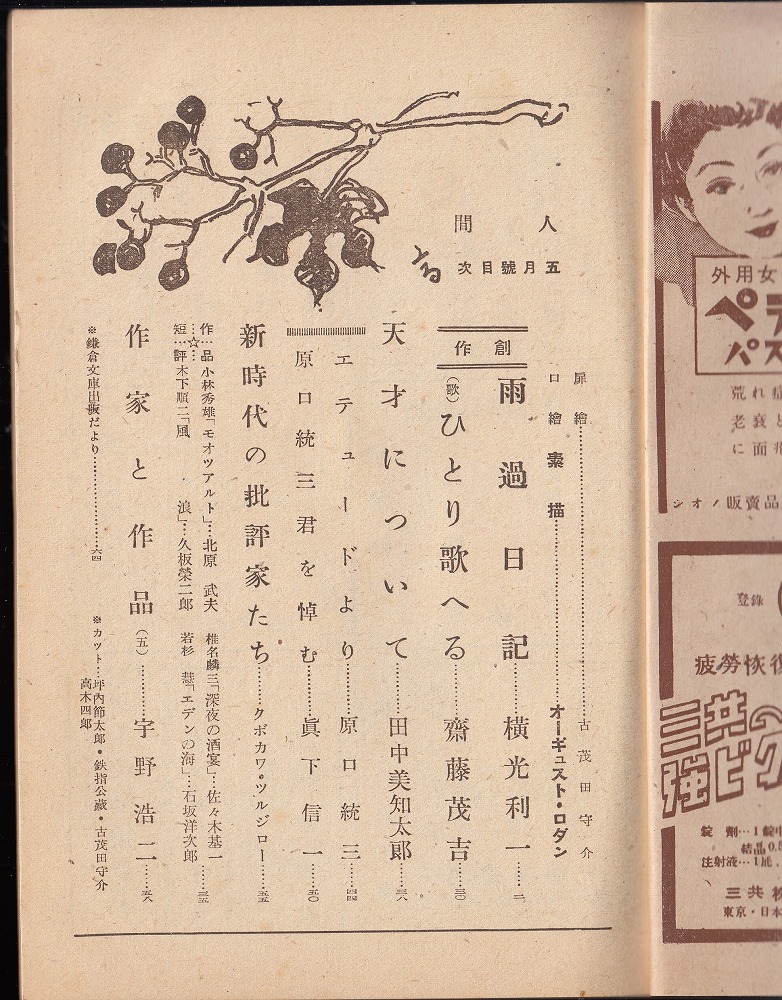 人間
五月號目次
扉繪……古茂田守介
口繪 素描……オーギュスト・ロダン
創作
雨過日記……橫光利一…二
(歌)ひとり歌へる……齋藤茂吉…三〇
天才について……田中美知太郎…三八
エテュードより……原口統三…四四
原口統三君を悼む……眞下信一…五〇
新時代の批評家たち……クボカワ・ツルジロー…五五
作…品 小林秀雄「モオツアルト」…北原武夫 椎名麟三「深夜の酒宴」…佐々木基一
…☆…
短…評 木下順二「風浪」…久板榮二郎 若杉慧「エデンの海」…石坂洋次郎
作家と作品(五)……宇野浩二…五八
※鎌倉文庫出版だより……六四
※カット…坪內節太郎・鉄指公藏・古茂田守介
高木四郎
外用女
パス
荒れ症
老衰と
に面疱
シオノ販賣品
登錄
疲勞恢復
三共の
強ビタ
錠劑…1錠中
結晶0.5
注射液…1
三共株
東京・日本